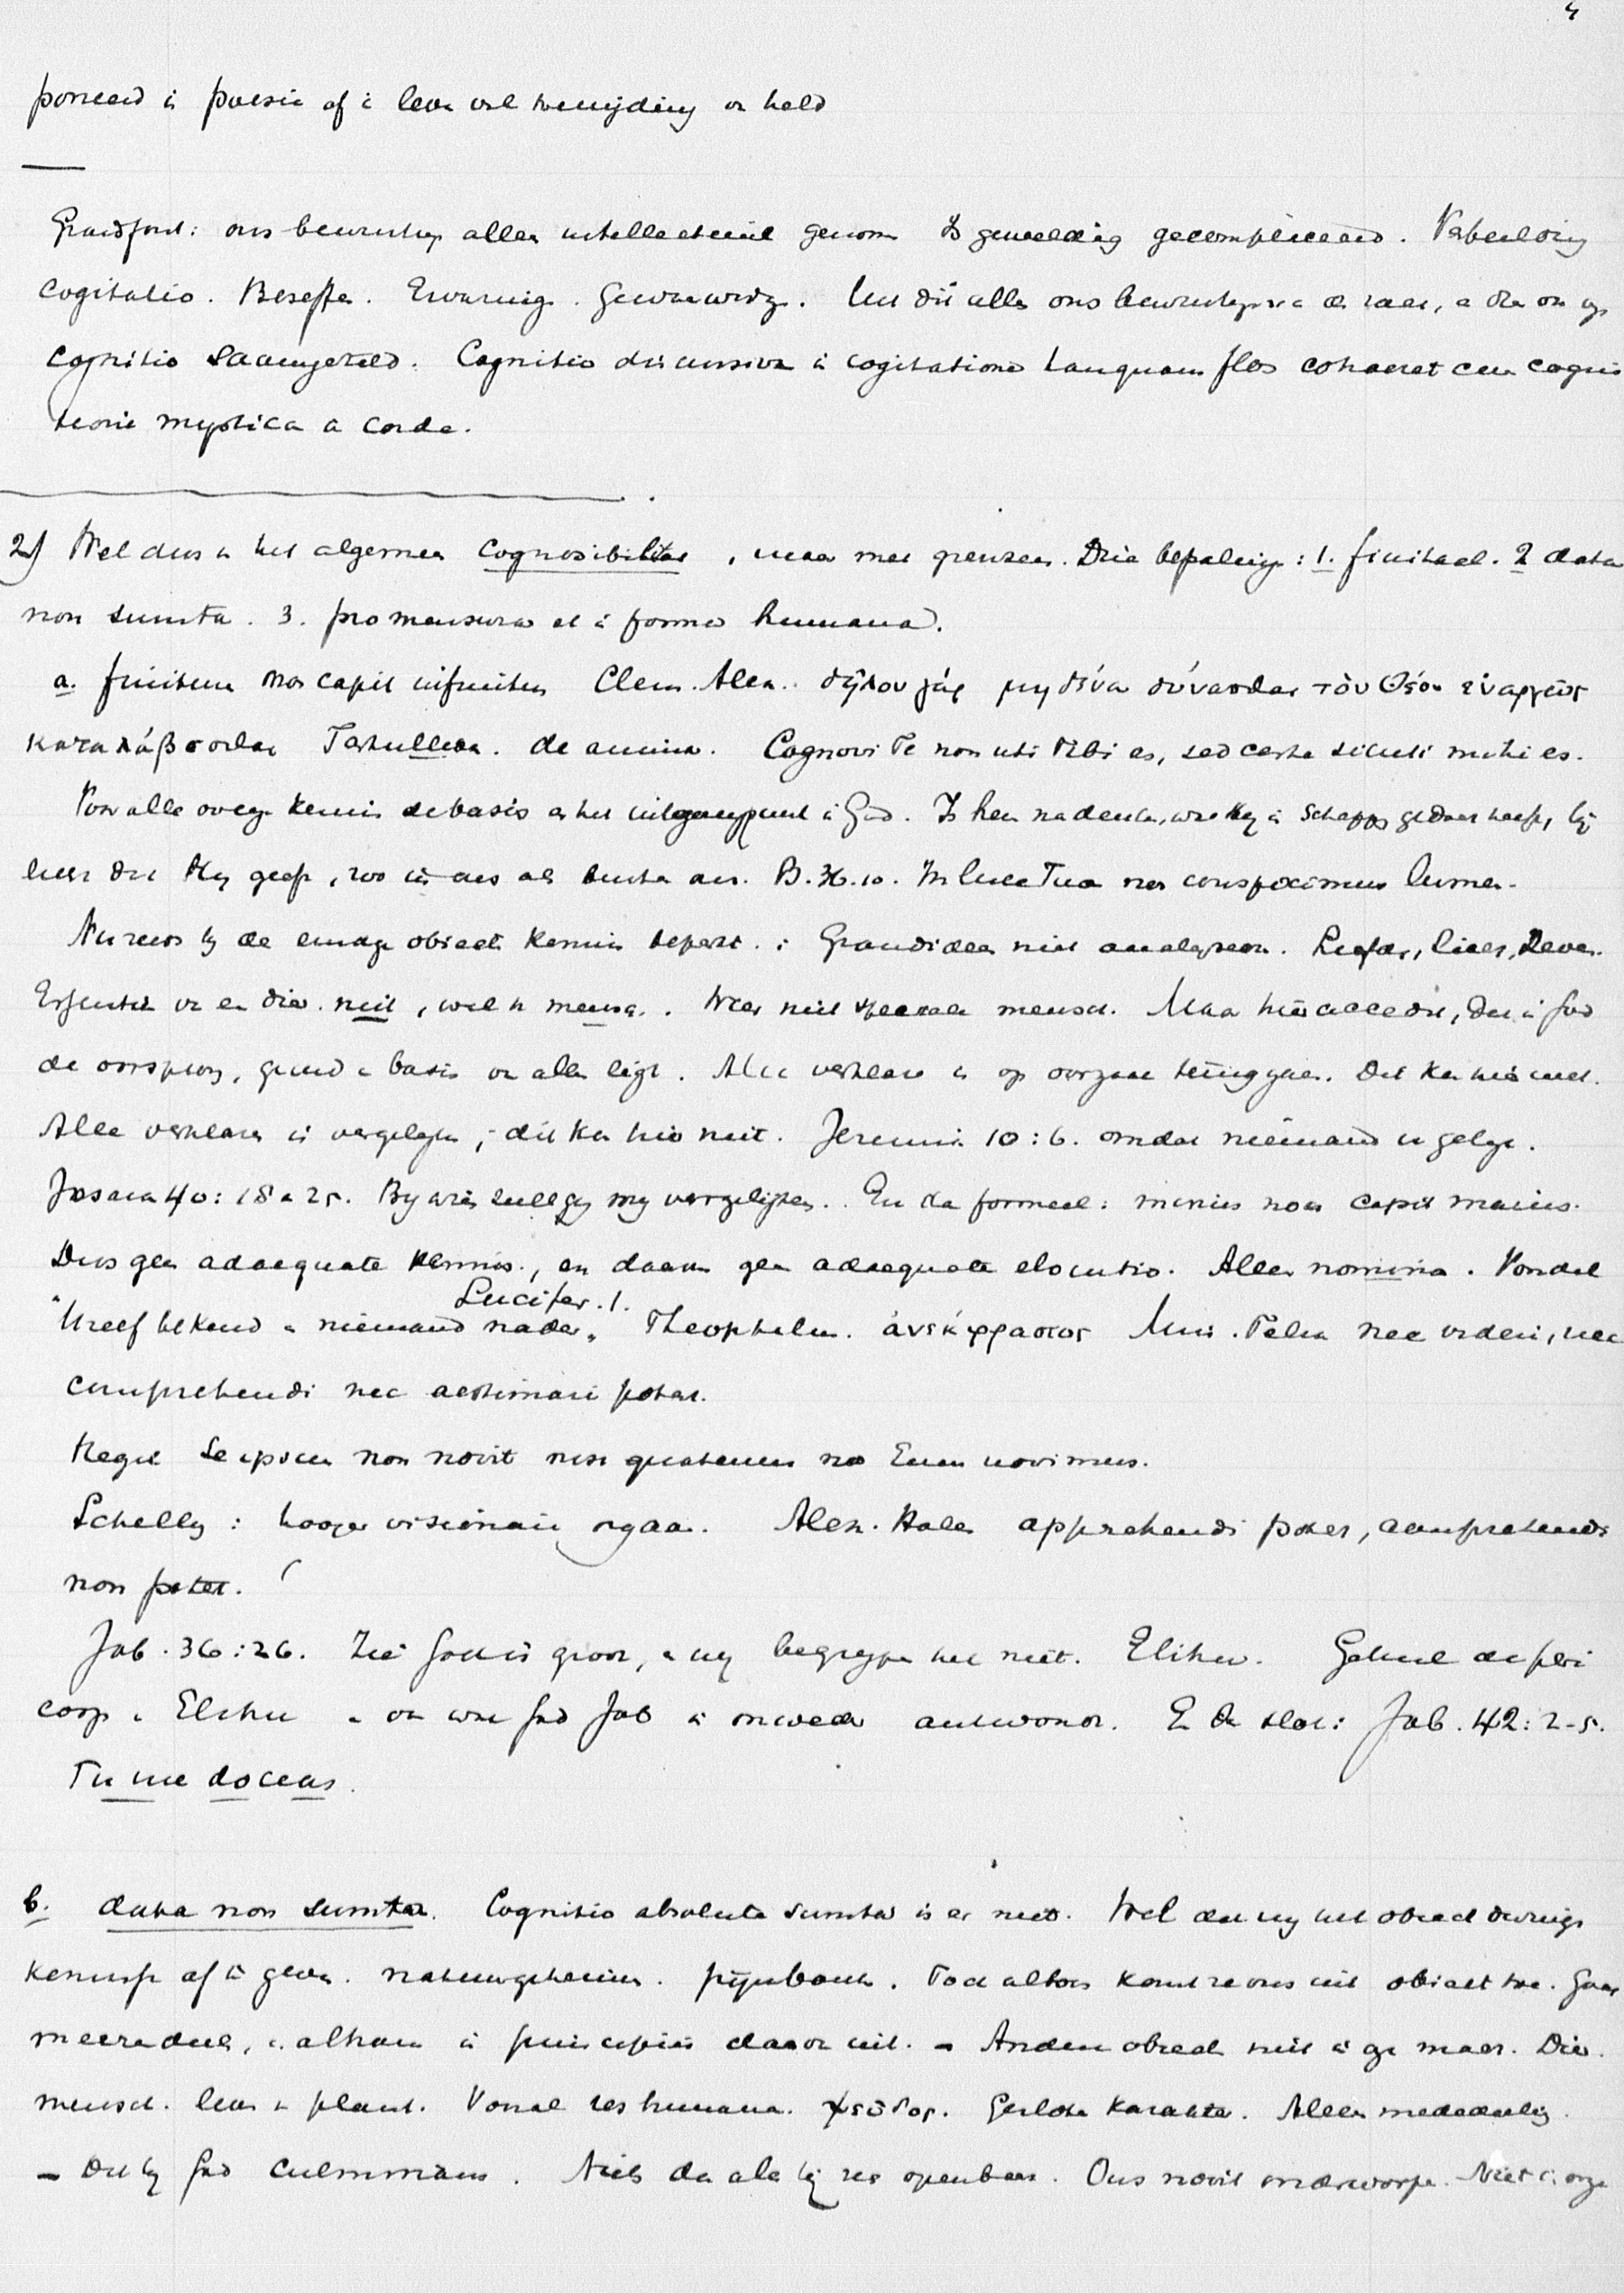 4
poneerd in poesie of in leven vol toewijding en held
Grondfout: ons bewustzijn alleen intellectueel genomen is geweldig gecompliceerd. Verbeelding
cogitatio. Beseffen. Ervaring. Gewaarwordg. Uit dit alles ons bewustzijn
cognitio saamgesteld. Cognitio discursiva in cogitatione tanquam flos cohaeret cum cogni
tione mystica a corde.
2) Wel dus in het algemeen cognosibilitas, maar met grenzen. Drie bepaling: 1. finitaal. 2 data
non sumta. 3. pro mensura et in forma humana.
a. finitum non capit infinitum Clem. Alex. δῆλον γάρ μηδένα δύνασθαι τὸν Θεόν ἐναργῶς
καταλάβεσθαι Tertullian. de anima. Cognovi Te non uti Tibi es, sed certe sicuti mihi es.
Van alle ovrge kennis de basis en het uitgangspunt in God. Ik ken nadenken, wat Hij in Schepping gedaan heeft, bij
Hij geeft, zoo in ons als buiten ons. Ps. 36.10. In luce Tua nos conspiximus lumen.
Nu reeds bij de eindige objecten kennis beperkt. Grondideen niet analyseren. Liefde, licht, Leven.
Essentie van een dier niet, wel 'n mensch. Weer niet speciale mensch. Maar hier accedit, dat in God
de oorsprong, grond en basis van alles ligt. Alle verklaren is op oorzaak teruggaan. Dit kan hier niet.
Alle verklaren is vergelijken; dit kan hier niet. Jeremia 10:6. omdat niemand U gelijk.
Jesaia 40:18 en 25. By wien zult gij mij vergelijken. En dan formeel: minus non capit maius.
Dus geen adaequate kennis, en daarom geen adaequate elocutio. Alleen nomina. Vondel
Lucifer. 1.
"Uzelf bekend en niemand nader" Theophilus. ἀνέκφραστος Min. Felix nec videri, nec
comprehendi nec aestimari potest.
Hegel Se ipsum non novit nisi quatenus nos Eum novimus.
Schelling: hooger visionair orgaan. Alex. Hales apprehendi potest, comprehendi
non potest.
Job. 36:26. Zie God is groot, en wij begrijpen het niet. Elihu. Geheel de
en Elihu en van wat God Job in onweder antwoordt. En dan slot: Job. 42:2-5.
Tu me doceas.
b. data non sumta. Cognitio absolute sumta is er niet. Wel dat wij het object dwingen
kennisse af te geven. natuurgeheimen. pijnbank. Toch altoos komt ze ons uit object toe. Gaat
meerendeels, en althans in principiis daarvan uit. - Andere objecten niet in ge maar. Dier.
mensch. leeuw en plant. Vooral res humana. ψεῦδος. Gesloten karakter. Alleen mededeeling.
- Dit bij God culmineert. Niets dan als hij zich openbaart. Ons nooit onderworpen. Niet in onze